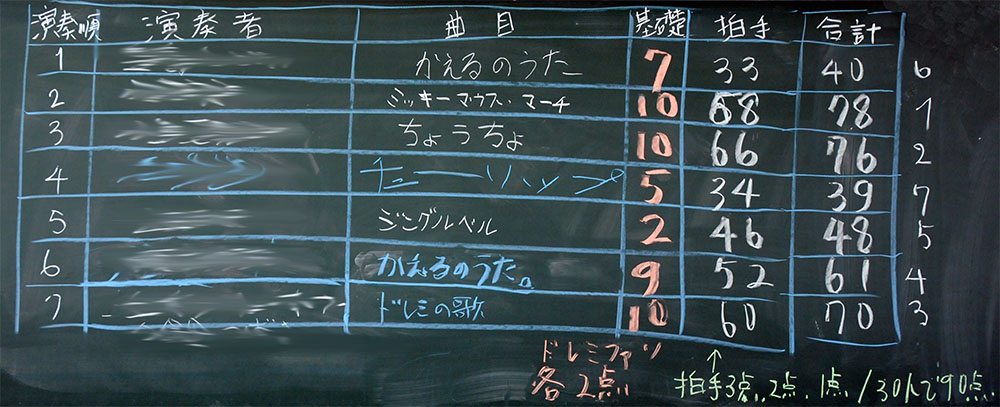 演奏順 演奏者 曲目 基礎 拍手 合計
1 かえるのうた 7 33 40 6
2 ミッキーマウス・マーチ 10 68 78 1
3 ちょうちょ 10 66 76 2
4 チューリップ 5 34 39 7
5 ジングルベル 2 46 48 5
6 かえるのうた。 9 52 61 4
7 ドレミの歌 10 60 70 3
ドレミファソ
各2点 ↑拍手3点、2点、1点/30人で90点